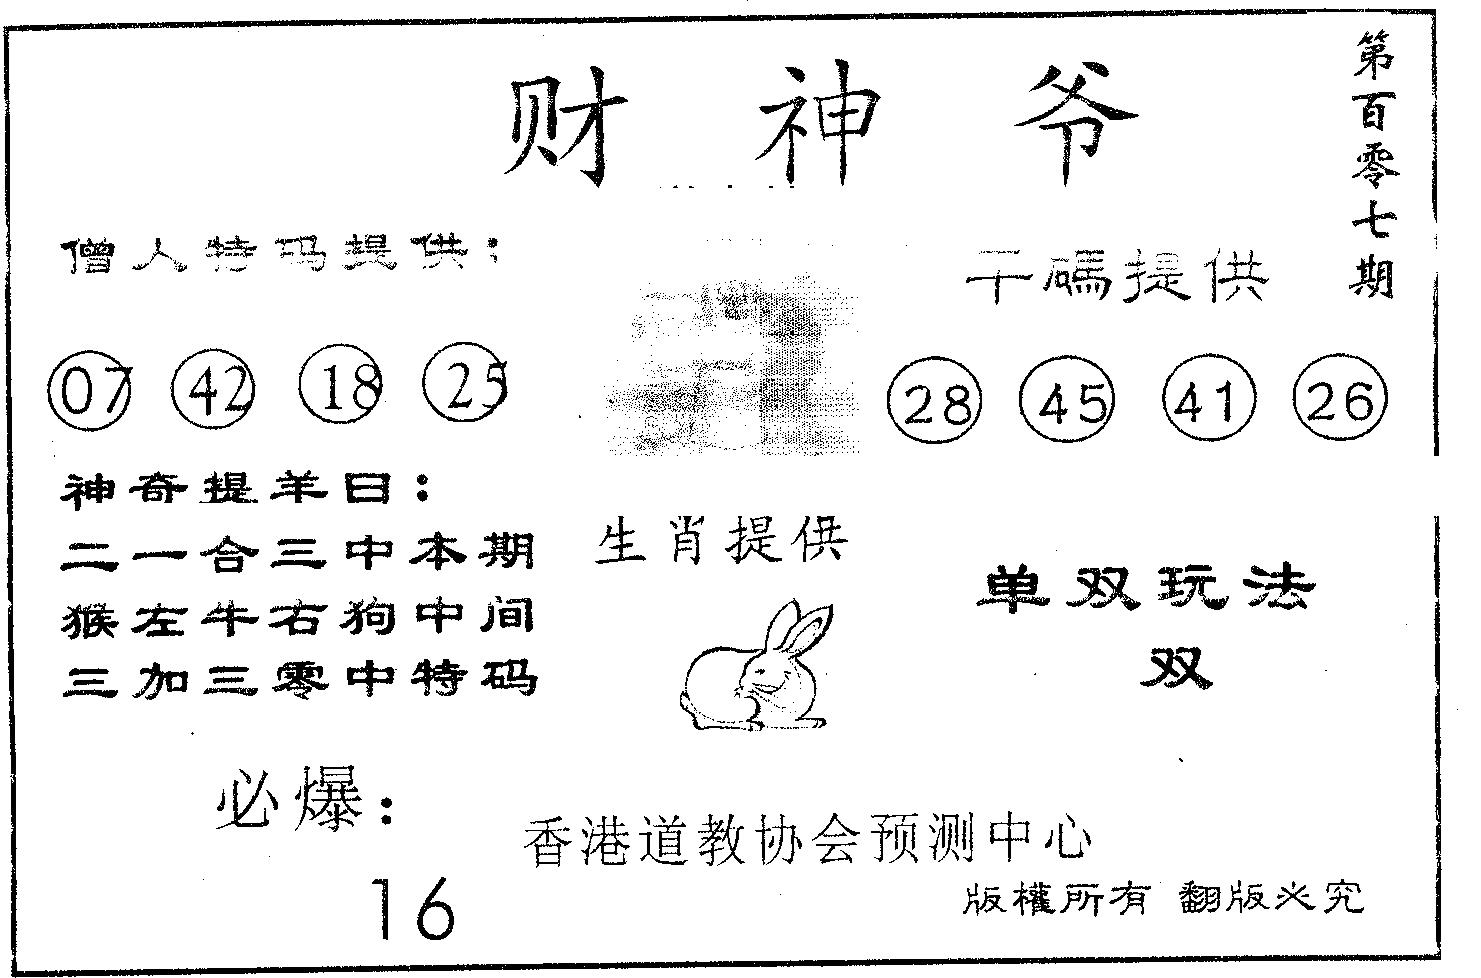 财神爷
第百零七期
僧人特码提供：
干碼提供
07 42 18 25
28 45 41 26
神奇提羊曰：
二一合三中本期
猴左牛右狗中间
三加三零中特码
生肖提供
单双玩法
双
必爆：
16
香港道教协会预测中心
版權所有 翻版必究